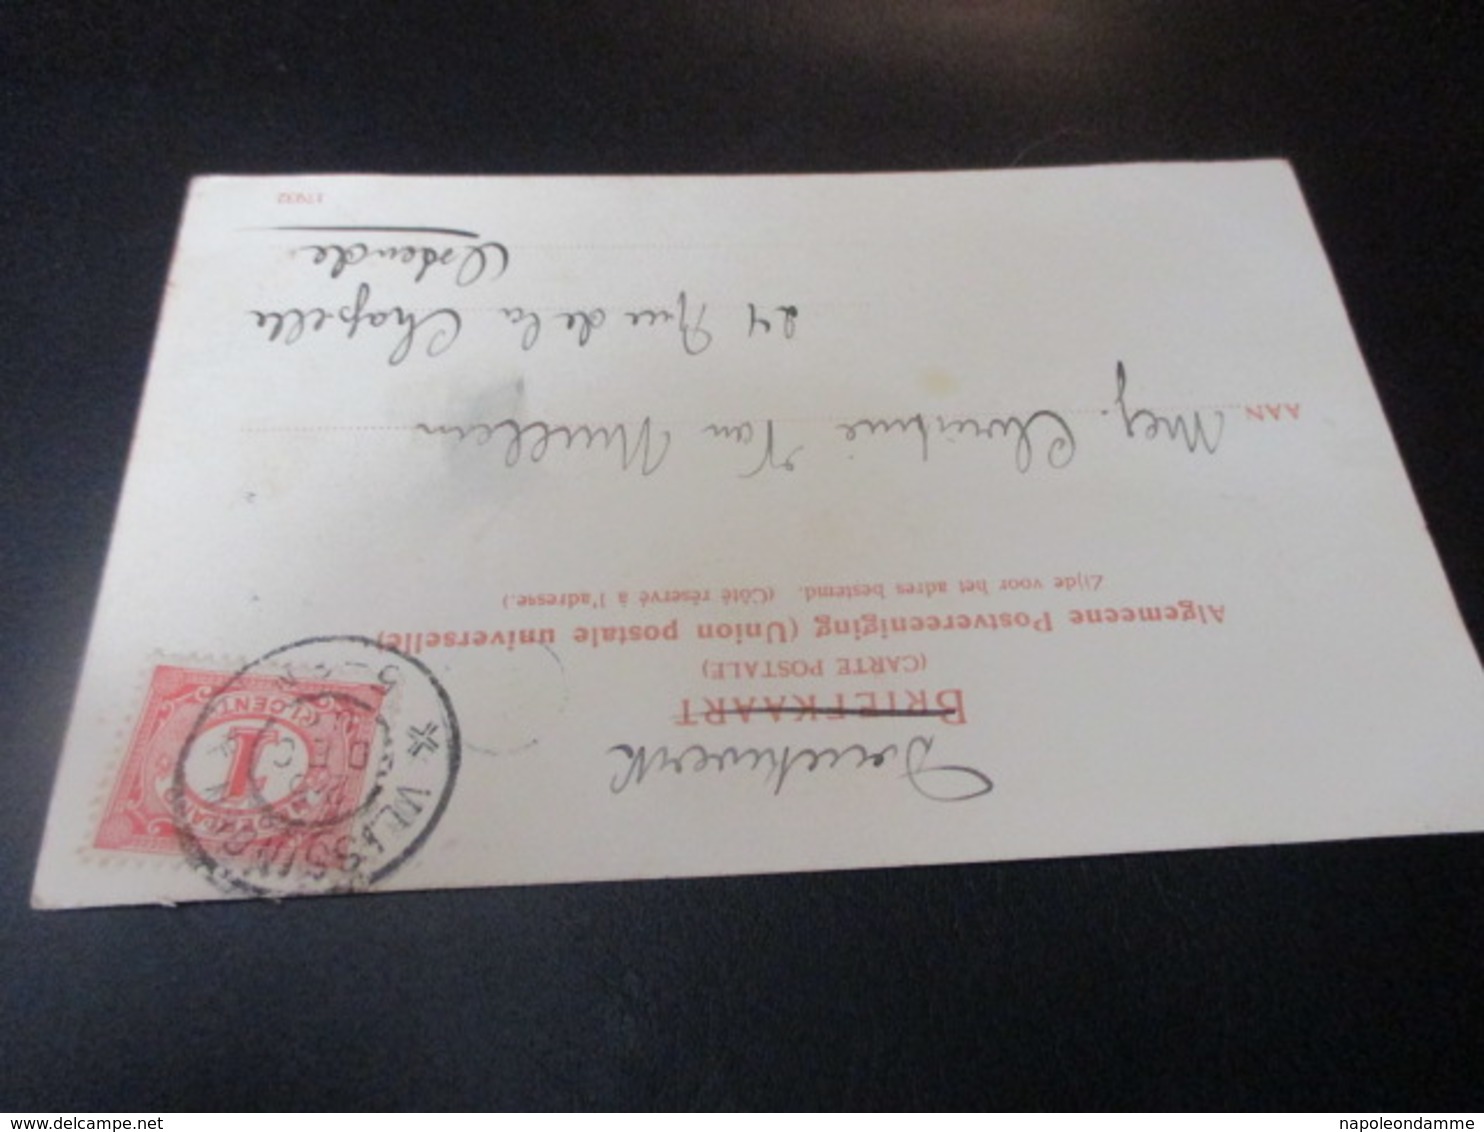 Drukwerk
BRIEFKAART
(CARTE POSTALE)
Algemeene Postvereeniging (Union postale universelle)
Zijde voor het adres bestemd. (Côté réservé à l'adresse.)
AAN Mej. Christine Van Mullem
24 Rue de la Chapelle
Ostende
17932
1
CENT
VLISSINGEN
delcampe.net
napoleondamme